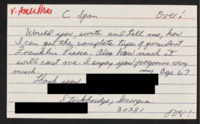 V-Antle Pres C Span Over!
Would you write and tell me, how
I can get the complete tapes of president
Franklin Pierce. Also how much it
will cost me. I enjoy your programs very
much. my Age 67
Thank you
Stockbridge, Georgia
30281
Over!